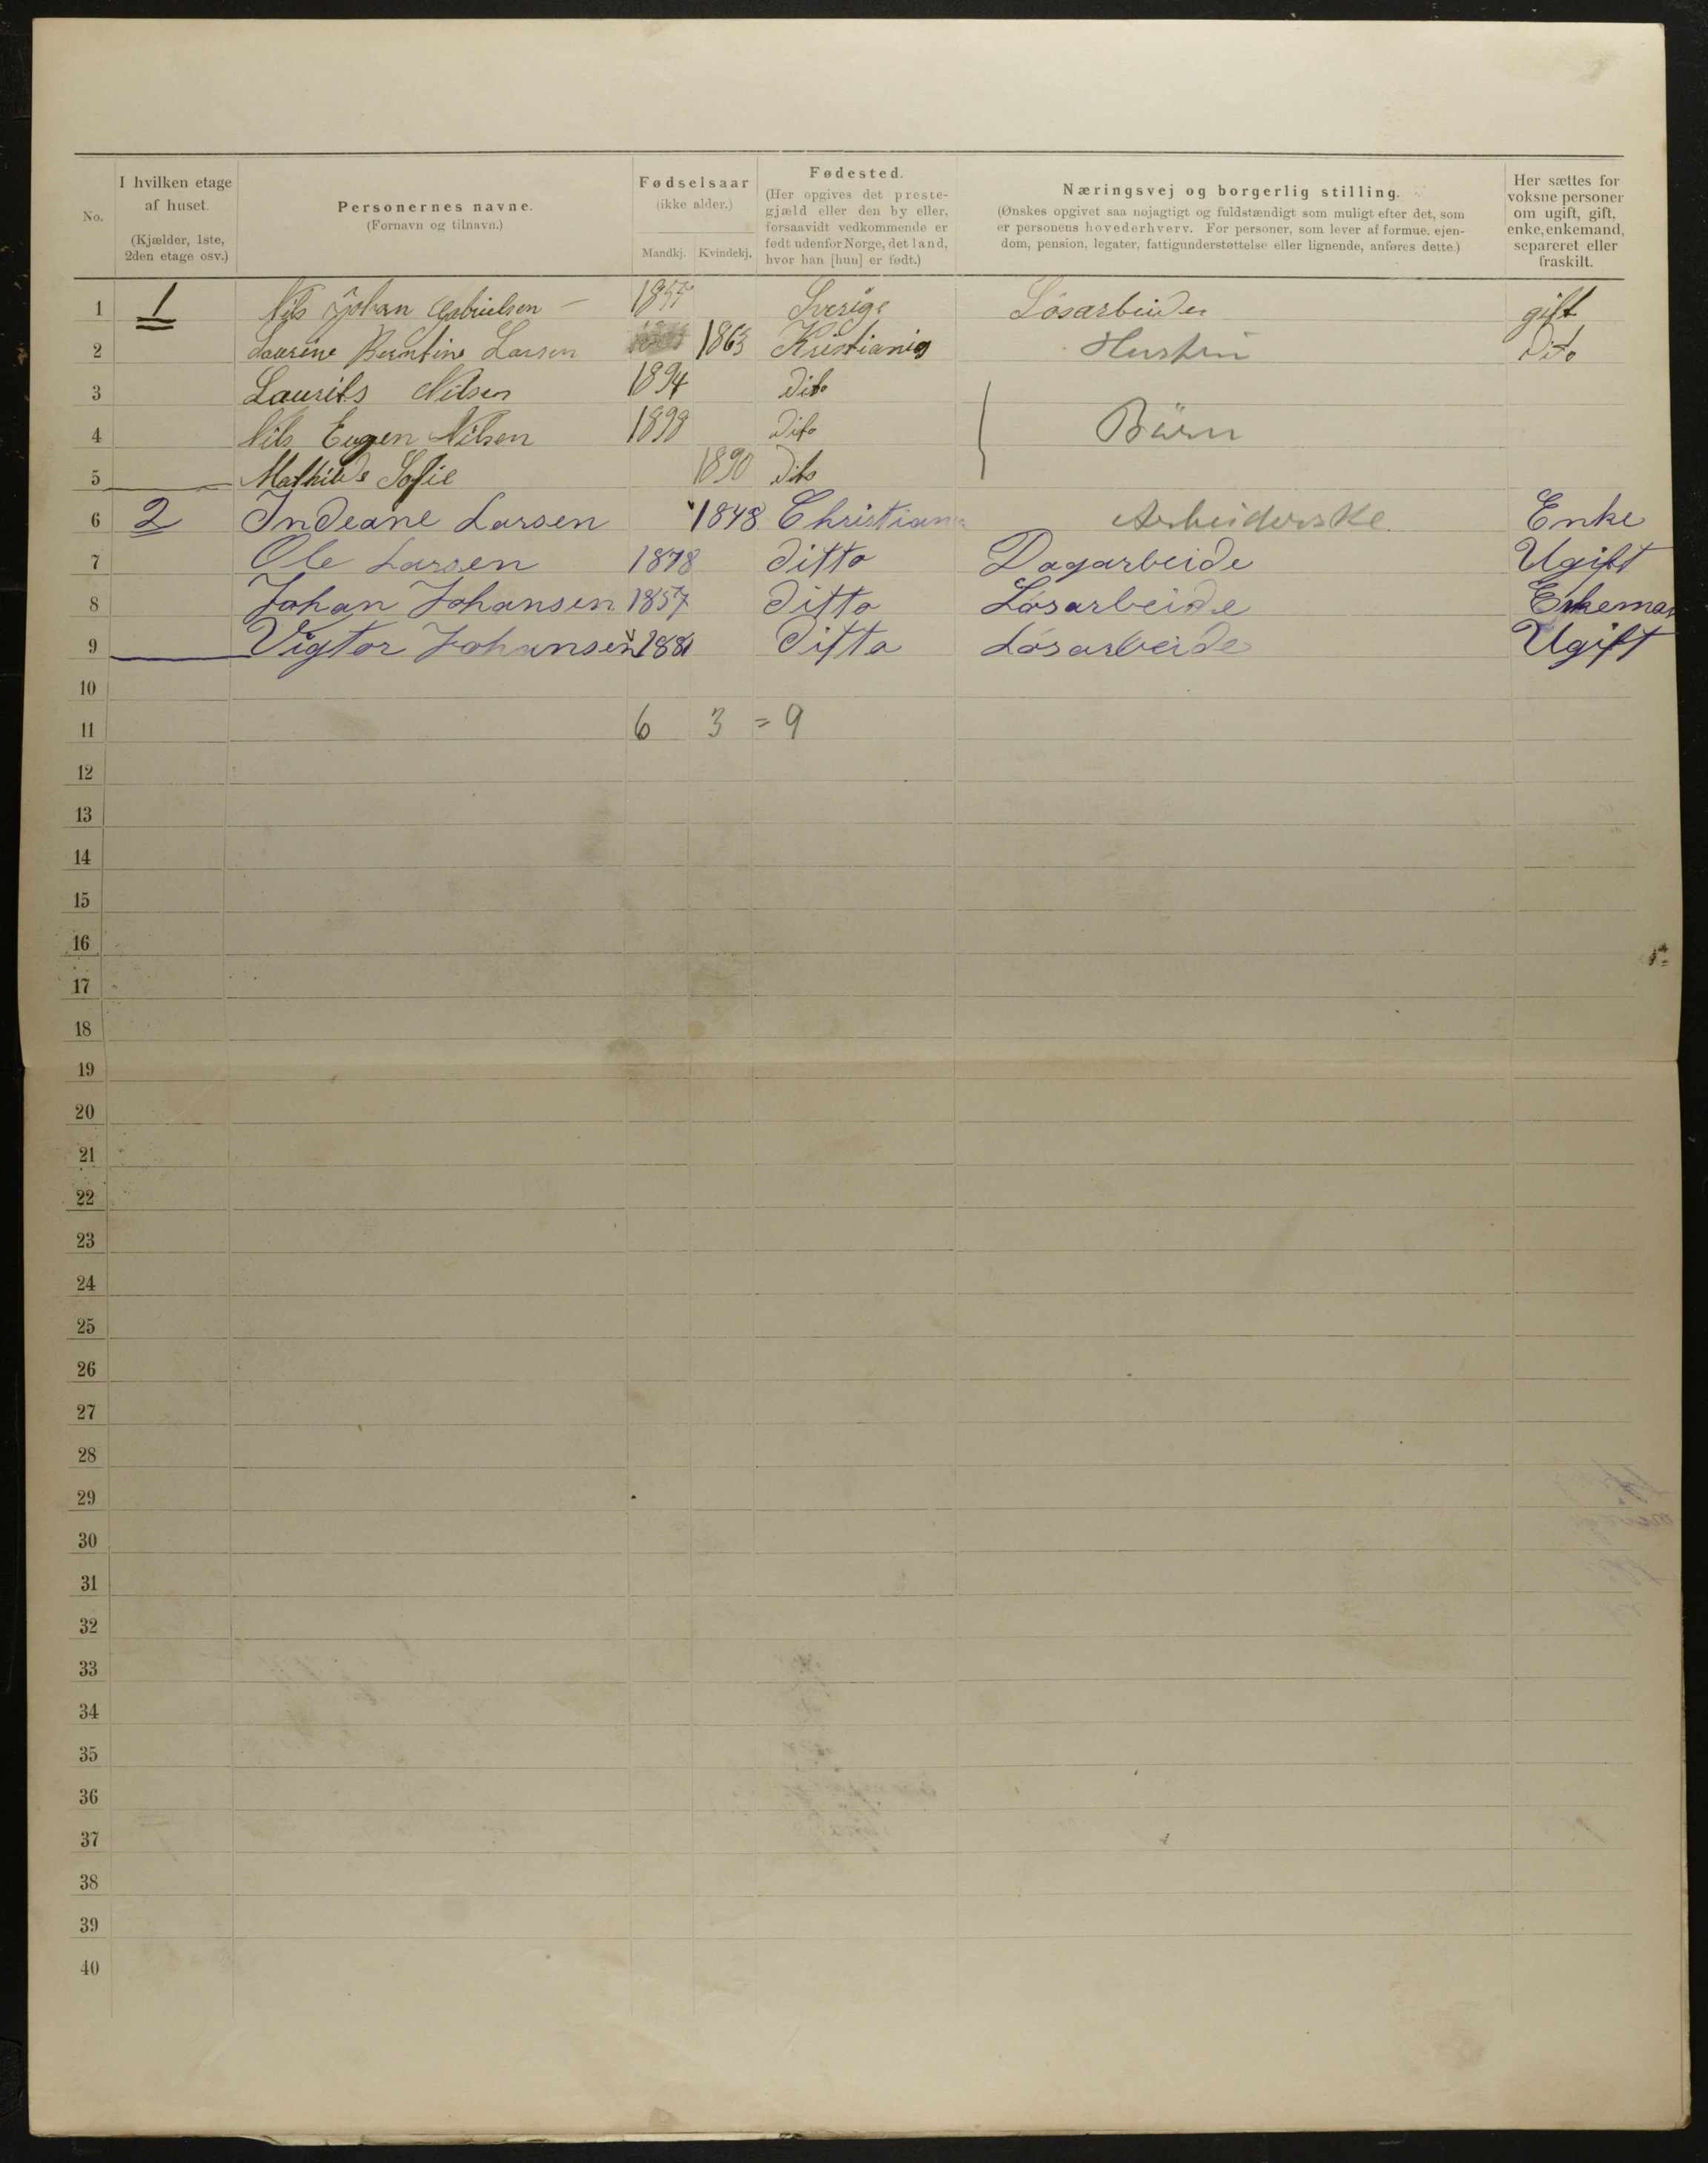 No. I hvilken etage af huset. (Kjælder, 1ste, 2den etage osv.) Personernes navne. (Fornavn og tilnavn.) Fødselsaar (ikke alder.) Mandkj. Kvindekj. Fødested. (Her opgives det prestegjæld eller den by eller, forsaavidt vedkommende er født udenfor Norge, det land, hvor han [hun] er født.) Næringsvej og borgerlig stilling. (Ønskes opgivet saa nøjagtigt og fuldstændigt som muligt efter det, som er personens hovederhverv. For personer, som lever af formue, ejendom, pension, legater, fattigunderstøttelse eller lignende, anføres dette.) Her sættes for voksne personer om ugift, gift, enke, enkemand, separeret eller fraskilt.
1 1 Nils Johan Gabrielsen 1857 Sverige Løsarbeider gift
2 Laurine Berntine Larsen 1863 Kristiania Hustru Dito
3 Laurits Nilsen 1894 Dito
4 Nils Eugen Nilsen 1898 Dito Børn
5 Mathilde Sofie 1890 Dito
6 2 Indeane Larsen 1848 Christiania Arbeiderske Enke
7 Ole Larsen 1878 Ditto Dagarbeide Ugift
8 Johan Johansen 1857 Ditto Løsarbeide Enkeman
9 Vigtor Johansen 1881 Ditto Løsarbeide Ugift
10
11 6 3 = 9
12
13
14
15
16
17
18
19
20
21
22
23
24
25
26
27
28
29
30
31
32
33
34
35
36
37
38
39
40